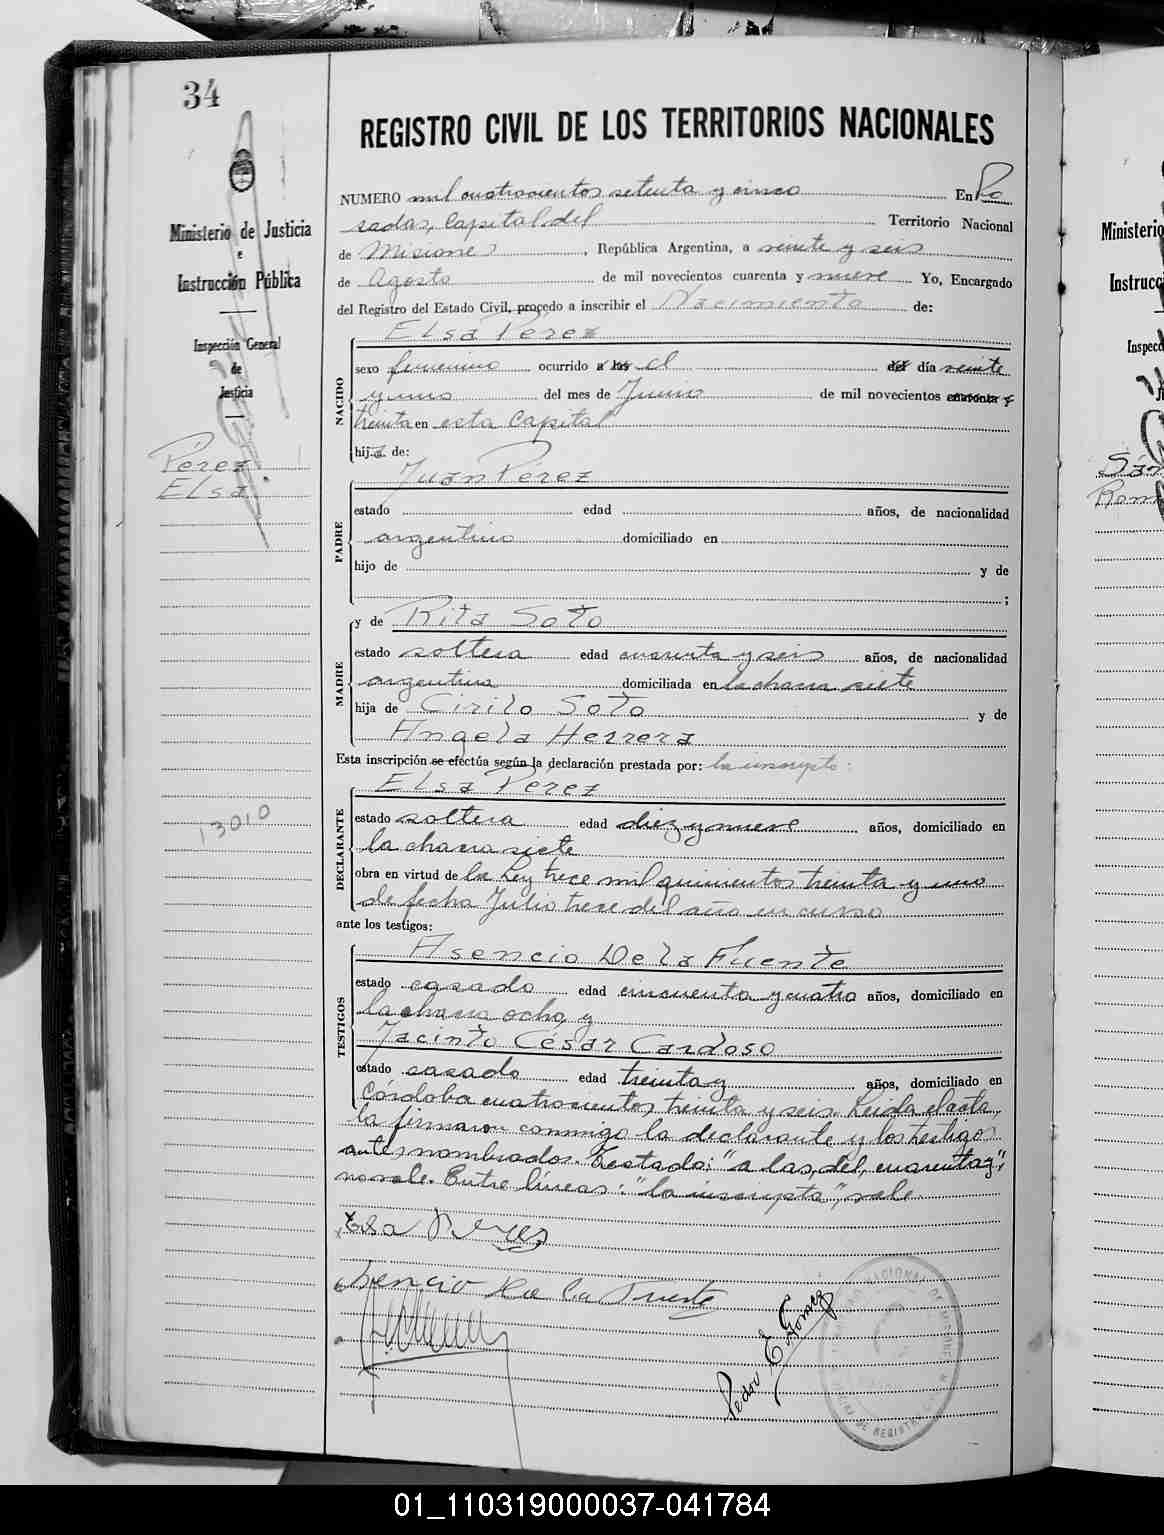 34
REGISTRO CIVIL DE LOS TERRITORIOS NACIONALES
Ministerio de Justicia
e
Instrucción Pública
Inspección General
de
Justicia
Pérez
Elsa
13010
NUMERO mil cuatrocientos setenta y cinco En Po
sadas, Capital del Territorio Nacional
de Misiones, República Argentina, a veinte y seis
de Agosto de mil novecientos cuarenta y nueve Yo, Encargado
del Registro del Estado Civil, procedo a inscribir el Nacimiento de:
Elsa Pérez
NACIDO
sexo femenino ocurrido a las el del día veinte
y uno del mes de Junio de mil novecientos cuarenta y
treinta en esta Capital
hija de:
Juan Pérez
PADRE
estado edad años, de nacionalidad
argentino domiciliado en
hijo de y de
;
y de Rita Soto
MADRE
estado soltera edad cuarenta y seis años, de nacionalidad
argentina domiciliada en la chacra siete
hija de Cirilo Soto y de
Angela Herrera
Esta inscripción se efectúa según la declaración prestada por: la inscripta:
Elsa Pérez
DECLARANTE
estado soltera edad diez y nueve años, domiciliado en
la chacra siete
obra en virtud de la Ley trece mil quinientos treinta y uno
de fecha Julio trece del año en curso
ante los testigos:
Asencio De la Fuente
TESTIGOS
estado casado edad cincuenta y cuatro años, domiciliado en
la chacra ocho, y
Jacinto César Cardoso
estado casado edad treinta y años, domiciliado en
Córdoba cuatrocientos treinta y seis. Leida el acta,
la firmaron conmigo la declarante y los testigos
antes nombrados. Testado: "a las, del, cuarenta y",
no vale. Entre lineas: "la inscripta", vale.
Elsa Perez
Asencio De la Fuente
Pedro E. Gomez
Ministerio
Instrucc
Inspecc
01_110319000037-041784